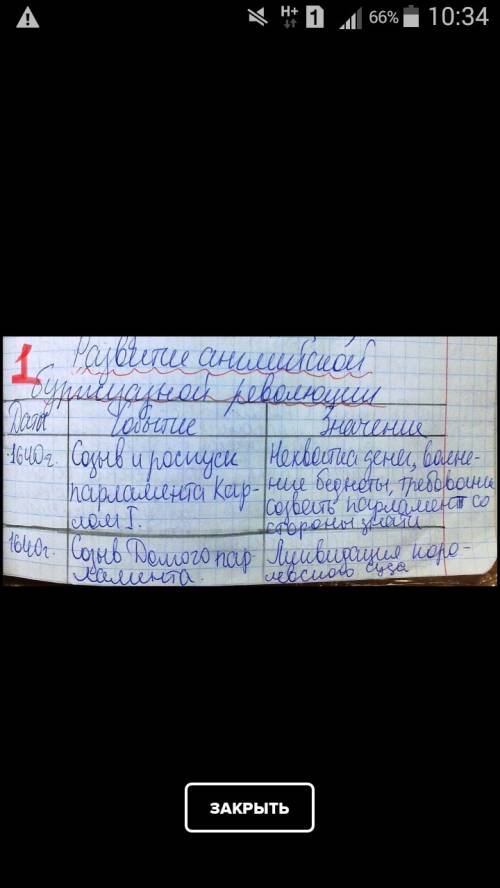 H+ 1 66% 10:34
1 Развитие английской
буржуазной революции
Даты Событие Значение
1640г. Созыв и роспуск
парламента Кар-
лом I.
Нехватка денег, волне-
ние бедноты, требование
созвать парламент со
стороны знати
1640г. Созыв Долгого пар-
ламента.
Ликвидация коро-
левского суда
ЗАКРЫТЬ